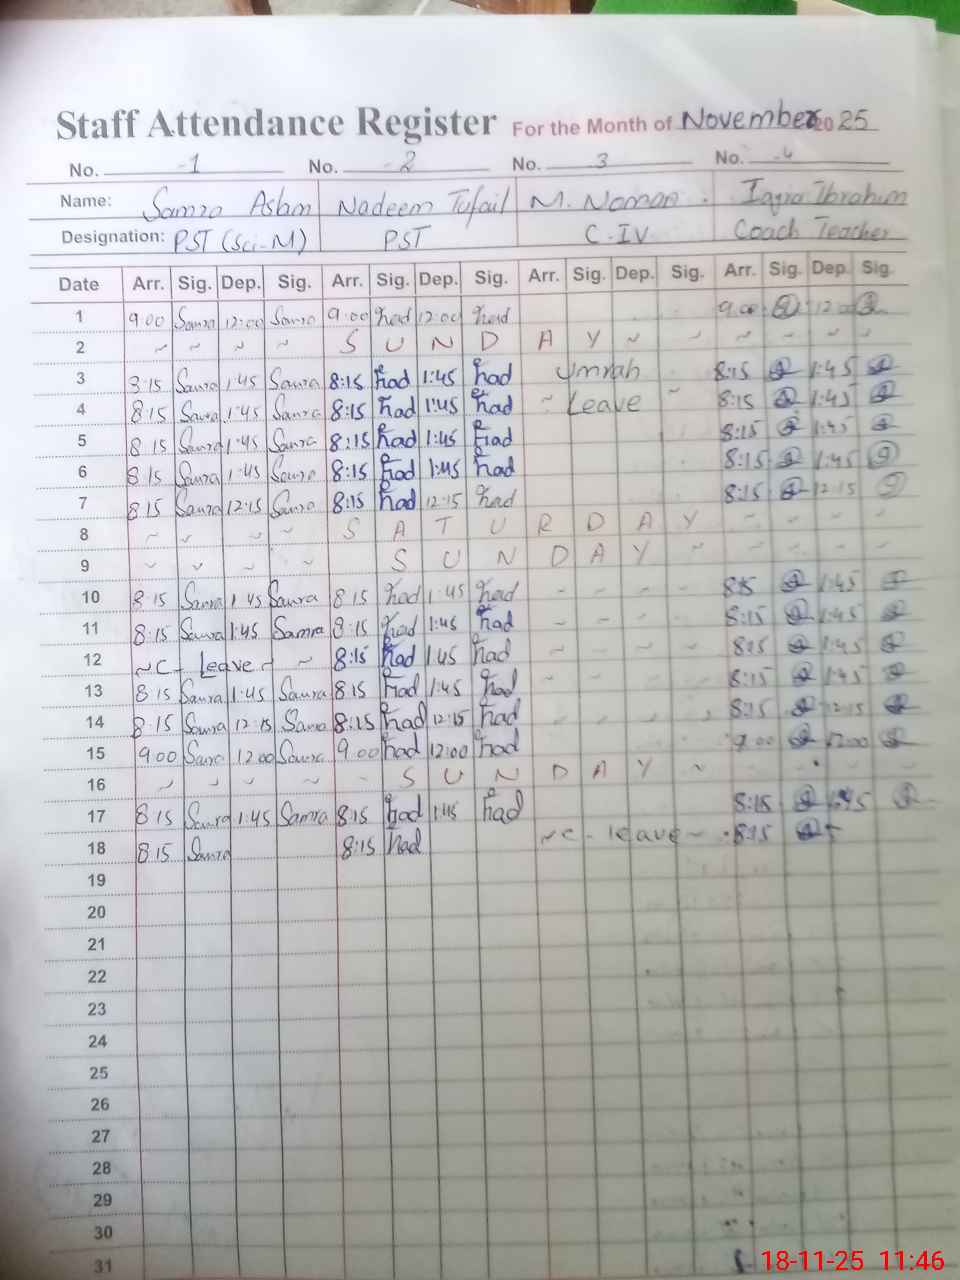 Staff Attendance Register For the Month of November 2025
No. 1 No. 2 No. 3 No. 4
Name: Samra Aslam Nadeem Tufail M. Noman Iqra Ibrahim
Designation: PST (Sci-M) PST C-IV Coach Teacher
Date Arr. Sig. Dep. Sig. Arr. Sig. Dep. Sig. Arr. Sig. Dep. Sig. Arr. Sig. Dep. Sig.
1 9:00 Samra 12:00 Samra 9:00 12:00 9:00 12:00
2 ~ ~ ~ ~ S U N D A Y ~ ~ ~ ~ ~ ~
3 8:15 Samra 1:45 Samra 8:15 1:45 Umrah 8:15 1:45
4 8:15 Samra 1:45 Samra 8:15 1:45 ~ Leave ~ 8:15 1:45
5 8:15 Samra 1:45 Samra 8:15 1:45 8:15 1:45
6 8:15 Samra 1:45 Samra 8:15 1:45 8:15 1:45
7 8:15 Samra 12:15 Samra 8:15 12:15 8:15 12:15
8 ~ ~ ~ ~ S A T U R D A Y ~ ~ ~ ~
9 ~ ~ ~ ~ S U N D A Y ~ ~ ~ ~ ~
10 8:15 Samra 1:45 Samra 8:15 1:45 - - - - 8:15 1:45
11 8:15 Samra 1:45 Samra 8:15 1:45 - - - - 8:15 1:45
12 ~ C - Leave - ~ 8:15 1:45 ~ ~ ~ ~ 8:15 1:45
13 8:15 Samra 1:45 Samra 8:15 1:45 8:15 1:45
14 8:15 Samra 12:15 Samra 8:15 12:15 8:15 12:15
15 9:00 Samra 12:00 Samra 9:00 12:00 9:00 12:00
16 ~ ~ ~ ~ ~ S U N D A Y ~
17 8:15 Samra 1:45 Samra 8:15 1:45 8:15 1:45
18 8:15 Samra 8:15 ~ C - leave ~ 8:15
19
20
21
22
23
24
25
26
27
28
29
30
31
18-11-25 11:46